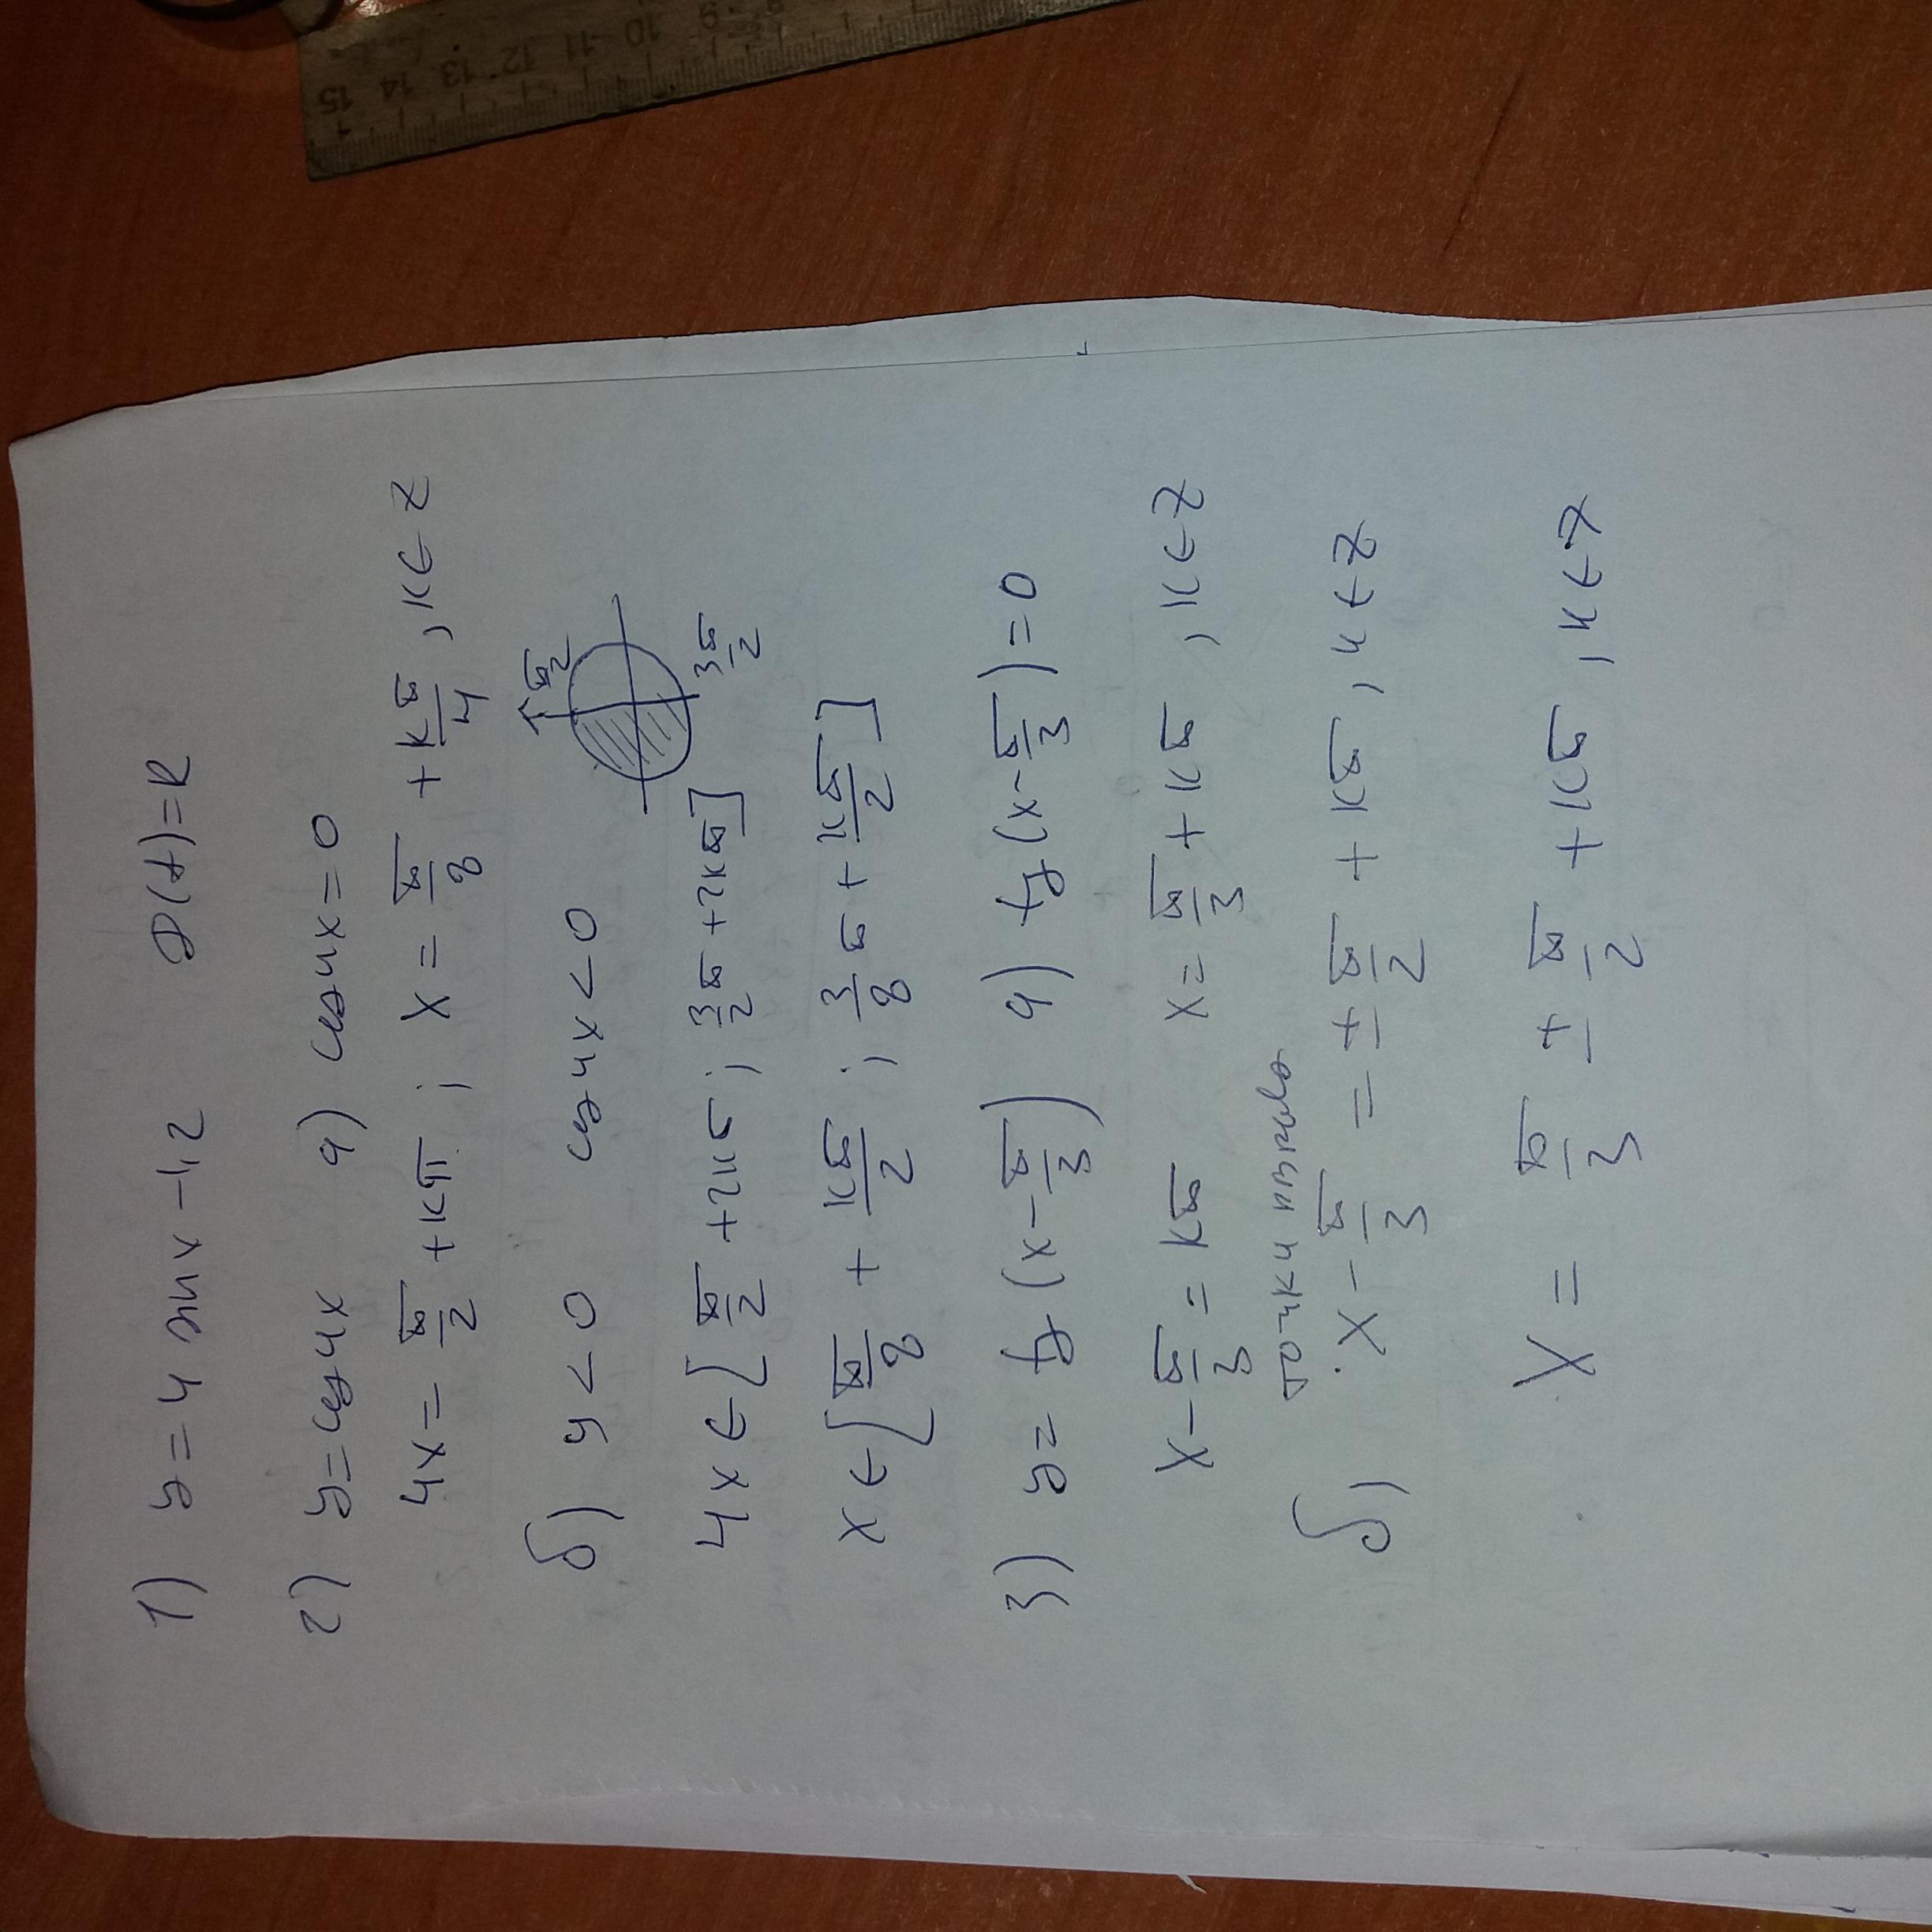 1) y = 4 sinx - 1,2   D(f) = R
2) y = cos4x   a) cos4x = 0
4x = π/2 + kπ ; x = π/8 + kπ/4 , k ∈ Z
б) y < 0   cos4x < 0
π/2
3π/2
4x ∈ [π/2 + 2kπ ; 3/2 π + 2kπ]
x ∈ [π/8 + kπ/2 ; 3/8 π + kπ/2]
3) y = tg(x - π/3)   a) tg(x - π/3) = 0
x - π/3 = kπ   x = π/3 + kπ , k ∈ Z
точки
б) x - π/3 = ± π/2 + kπ , k ∈ Z
x = π/3 ± π/2 + kπ , k ∈ Z
15 14 13 12 11 10 9